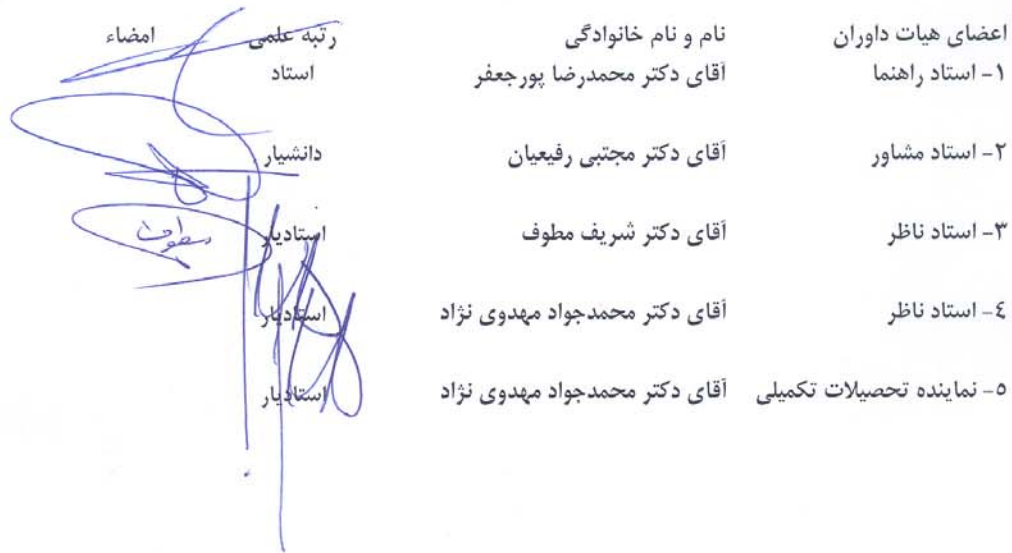 اعضای هیات داوران نام و نام خانوادگی رتبه علمی امضاء
۱- استاد راهنما آقای دکتر محمدرضا پورجعفر استاد
۲- استاد مشاور آقای دکتر مجتبی رفیعیان دانشیار
۳- استاد ناظر آقای دکتر شریف مطوف استادیار
٤- استاد ناظر آقای دکتر محمدجواد مهدوی نژاد استادیار
٥- نماینده تحصیلات تکمیلی آقای دکتر محمدجواد مهدوی نژاد استادیار